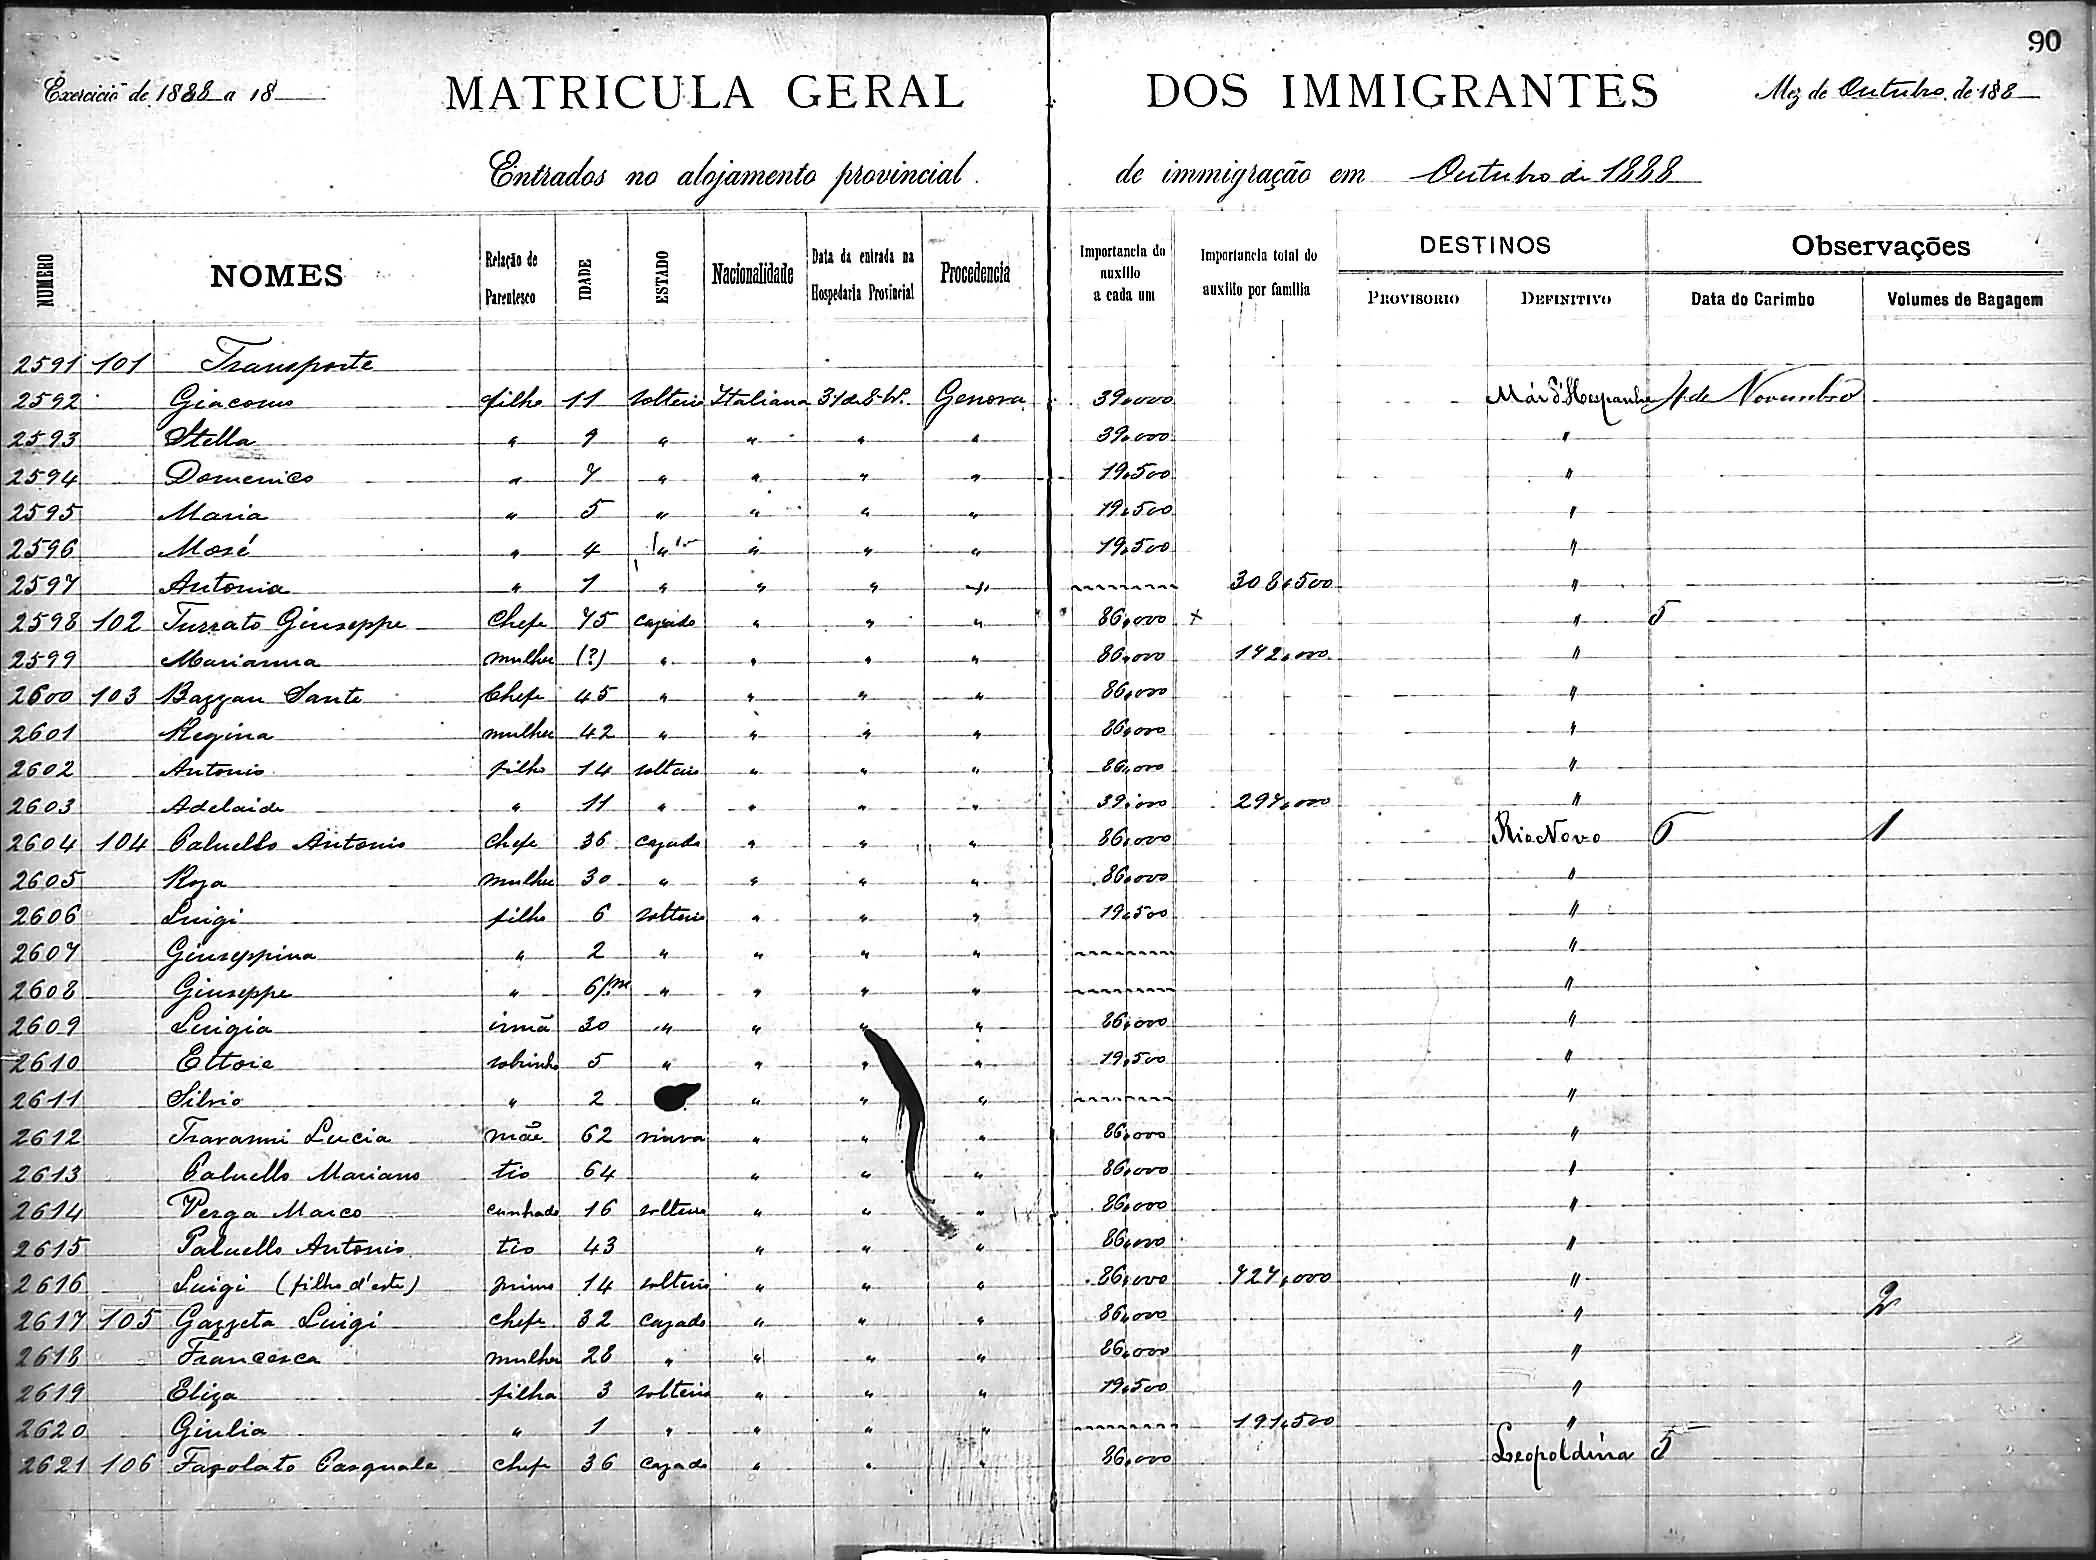 90
Exercicio de 1888 a 18
MATRICULA GERAL DOS IMMIGRANTES
Mez de Outubro de 188
Entrados no alojamento provincial de immigração em Outubro de 1888
NUMERO NOMES Relação de Parentesco IDADE ESTADO Nacionalidade Data da entrada na Hospedaria Provincial Procedencia Importancia do auxilio a cada um Importancia total do auxilio por familia DESTINOS PROVISORIO DEFINITIVO Observações Data do Carimbo Volumes de Bagagem
2591 101 Transporte
2592 Giacomo filho 11 solteiro Italiana Genova 39,000 Mar d'Hespanha 4 de Novembro
2593 Stella " 9 " " " " 39,000 "
2594 Domenico " 7 " " " " 19,500 "
2595 Maria " 5 " " " " 19,500 "
2596 Mosé " 4 " " " " 19,500 "
2597 Antonia " 1 " " " " 308,500 "
2598 102 Turrato Giuseppe Chefe 75 cazado " " " 86,000 x " 5
2599 Marianna mulher (?) " " " " 86,000 172,000 "
2600 103 Bazzan Sante Chefe 45 " " " " 86,000 "
2601 Regina mulher 42 " " " " 86,000 "
2602 Antonio filho 14 solteiro " " " 86,000 "
2603 Adelaide " 11 " " " " 39,000 297,000 "
2604 104 Paluello Antonio chefe 36 cazado " " " 86,000 Rio Novo 6 1
2605 Roza mulher 30 " " " " 86,000 "
2606 Luigi filho 6 solteiro " " " 19,500 "
2607 Giuseppina " 2 " " " " "
2608 Giuseppe " 6/m " " " " "
2609 Luigia irmã 30 " " " " 86,000 "
2610 Ettore sobrinho 5 " " " " 19,500 "
2611 Silvio " 2 " " " "
2612 Travanni Lucia mãe 62 viuva " " " 86,000 "
2613 Paluello Mariano tio 64 " " " 86,000 "
2614 Verga Marco cunhado 16 solteiro " " " 86,000 "
2615 Paluello Antonio tio 43 " " " 86,000 "
2616 Luigi (filho d'este) primo 14 solteiro " " " 86,000 727,000 "
2617 105 Gazzeta Luigi chefe 32 cazado " " " 86,000 " 2
2618 Francesca mulher 28 " " " " 86,000 "
2619 Eliza filha 3 solteiro " " " 19,500 "
2620 Giulia " 1 " " " " 191,500 "
2621 106 Fapolato Pasquale chefe 36 cazado " " " 86,000 Leopoldina 5